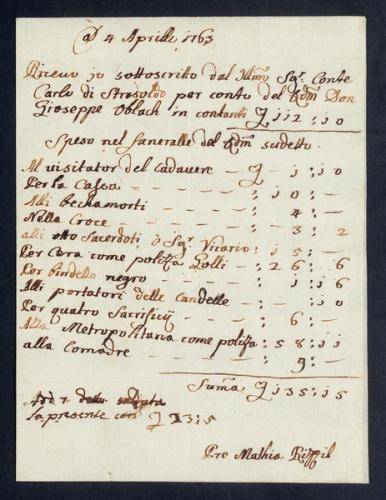 Adì 4 Aprille 1763
Ricevo io sottoscritto dal Illmo Sigr Conte
Carlo di Strasoldo per conto del Rdmo Don
Gioseppe Oblach in contanti L 112 : 10
Speso nel funeralle del Rdmo sudetto
Al visitator del cadavere — L — 1 : 10
Per la Cassa — — — — : 10 : —
Alli beccamorti — — — : 4 : —
Nella Croce — — — — : 3 : 2
alli otto Sacerdoti, o Sigr Vicario : 15 : —
Per Cera come poliza Lolli — : 26 : 6
Per bindello negro — — — : 1 : 6
Alli portatori delle Candelle — — : — 10
Per quatro Sacrifitij — — : 6 : —
Alla Metropolitana come poliza : 58 : 11
alla Comadre — — — — : 9 : —
Suma L 135 : 15
la presente con L 23 : 5
Pre Mathia